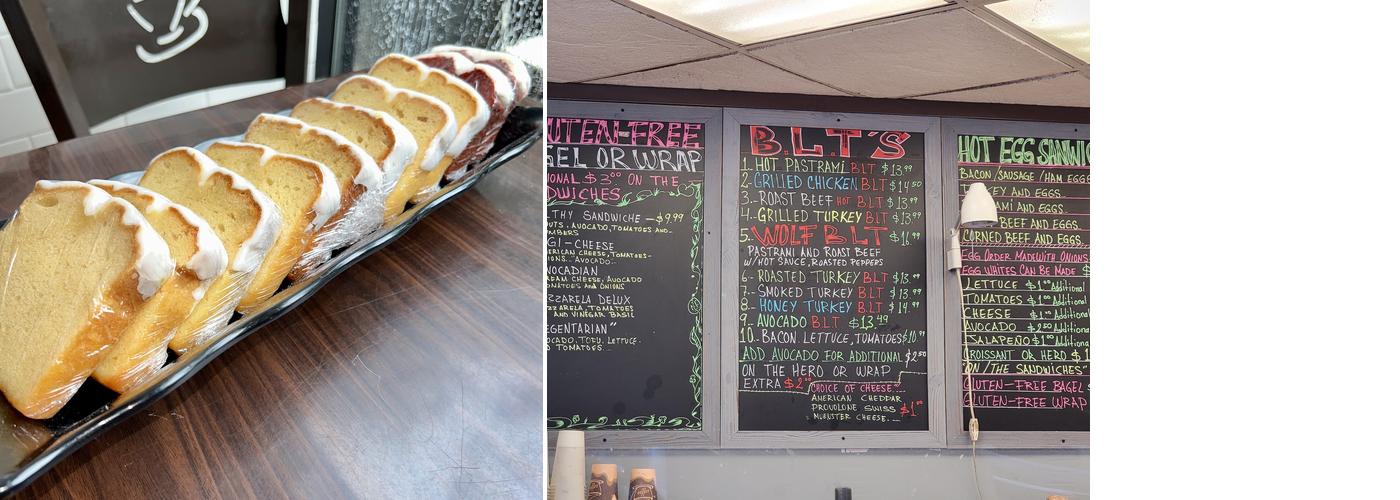 UTEN-FREE
GEL OR WRAP
IONAL $3.00 ON THE
DWICHES
LTHY SANDWICHE — $9.99
UTS, AVOCADO, TOMATOES AND
UMBERS
GI-CHEESE
ERICAN CHEESE, TOMATOES-
IONS.. AVOCADO..
VOCADIAN
ADAM CHEESE, AVOCADO
TOMATOES AND ONIONS
ZZARELA DELUX
ZZARELA, TOMATOES
AND VINEGAR BASIL
EGENTARIAN"
OCADO. TOFU. LETTUCE.
D TOMATOES..
B.L.T'S
1. HOT PASTRAMI BLT $13.99
2- GRILLED CHICKEN BLT $14.50
3-- ROAST BEEF HOT BLT $13.99
4-- GRILLED TURKEY BLT $13.99
5. WOLF BLT $16.99
PASTRAMI AND ROAST BEEF
W/HOT SAUCE, ROASTED PEPPERS
6- ROASTED TURKEY BLT $13.99
7-- SMOKED TURKEY BLT $13.99
8-- HONEY TURKEY BLT $14.99
9- AVOCADO BLT $13.49
10. BACON. LETTUCE, TOMATOES $10.99
ADD AVOCADO FOR ADDITIONAL $2.50
ON THE HERO OR WRAP
EXTRA $2.00
CHOICE OF CHEESE"
AMERICAN CHEDDAR
PROVOLONE SWISS $1.00
MUENSTER CHEESE..
HOT EGG SANWIC
BACON/SAUSAGE/HAM EGGS
KEY AND EGGS..
AMI AND EGGS..
BEEF AND EGGS..
CORNED BEEF AND EGGS..
EGG ORDER MADE WITH ONIONS
EGG WHITES CAN BE MADE $
LETTUCE $1.00 Additional
TOMATOES $1.00 Additional
CHEESE $1.00 Additional
AVOCADO $2.50 Additional
JALAPEÑO $1.00 Additional
CROISSANT OR HERO $1
"ON/THE SANDWICHES"
GLUTEN-FREE BAGEL $
GLUTEN-FREE WRAP